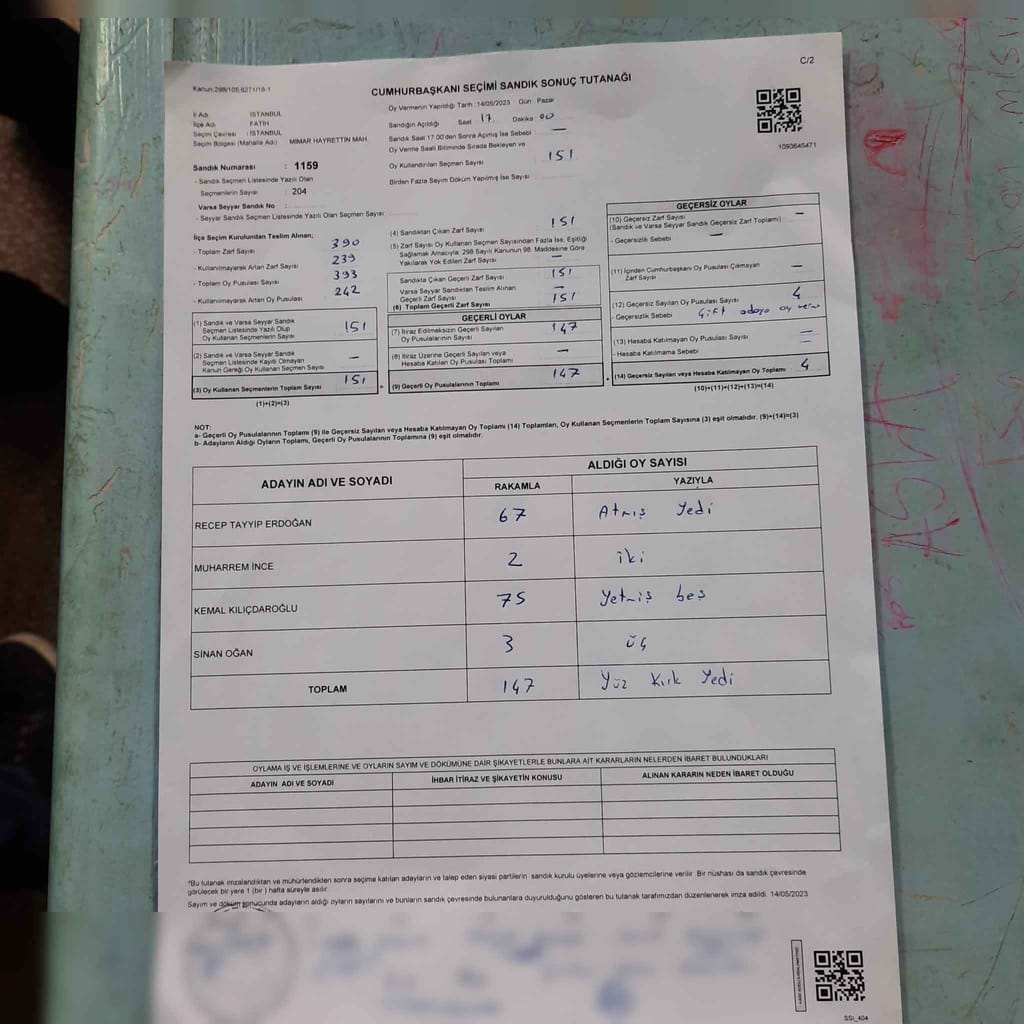 C/2
Kanun:298/105,6271/18-1
CUMHURBAŞKANI SEÇİMİ SANDIK SONUÇ TUTANAĞI
Oy Vermenin Yapıldığı Tarih : 14/05/2023 Gün : Pazar
İl Adı : İSTANBUL
İlçe Adı : FATİH
Seçim Çevresi : İSTANBUL
Seçim Bölgesi (Mahalle Adı) : MİMAR HAYRETTİN MAH
Sandığın Açıldığı Saat 17 Dakika 00
Sandık Saat 17:00'den Sonra Açılmış İse Sebebi —
Oy Verme Saati Bitiminde Sırada Bekleyen ve
Oy Kullandırılan Seçmen Sayısı : 151
Birden Fazla Sayım Döküm Yapılmış İse Sayısı :
1093645471
Sandık Numarası : 1159
- Sandık Seçmen Listesinde Yazılı Olan
Seçmenlerin Sayısı : 204
Varsa Seyyar Sandık No :
- Seyyar Sandık Seçmen Listesinde Yazılı Olan Seçmen Sayısı
İlçe Seçim Kurulundan Teslim Alınan;
- Toplam Zarf Sayısı 390
- Kullanılmayarak Artan Zarf Sayısı 239
- Toplam Oy Pusulası Sayısı 393
- Kullanılmayarak Artan Oy Pusulası 242
(1) Sandık ve Varsa Seyyar Sandık
Seçmen Listesinde Yazılı Olup
Oy Kullanan Seçmenlerin Sayısı 151
(2) Sandık ve Varsa Seyyar Sandık
Seçmen Listesinde Kayıtlı Olmayan
Kanun Gereği Oy Kullanan Seçmen Sayısı —
(3) Oy Kullanan Seçmenlerin Toplam Sayısı 151
(1)+(2)=(3)
(4) Sandıktan Çıkan Zarf Sayısı : 151
(5) Zarf Sayısı Oy Kullanan Seçmen Sayısından Fazla İse, Eşitliği
Sağlamak Amacıyla; 298 Sayılı Kanunun 98. Maddesine Göre
Yakılarak Yok Edilen Zarf Sayısı : —
Sandıkta Çıkan Geçerli Zarf Sayısı : 151
Varsa Seyyar Sandıktan Teslim Alınan
Geçerli Zarf Sayısı —
(6) Toplam Geçerli Zarf Sayısı : 151
GEÇERLİ OYLAR
(7) İtiraz Edilmeksizin Geçerli Sayılan
Oy Pusulalarının Sayısı : 147
(8) İtiraz Üzerine Geçerli Sayılan veya
Hesaba Katılan Oy Pusulası Toplamı —
(9) Geçerli Oy Pusulalarının Toplamı 147
GEÇERSİZ OYLAR
(10) Geçersiz Zarf Sayısı —
(Sandık ve Varsa Seyyar Sandık Geçersiz Zarf Toplamı)
- Geçersizlik Sebebi —
(11) İçinden Cumhurbaşkanı Oy Pusulası Çıkmayan
Zarf Sayısı —
(12) Geçersiz Sayılan Oy Pusulası Sayısı 4
- Geçersizlik Sebebi : Çift adaya oy
(13) Hesaba Katılmayan Oy Pusulası Sayısı —
- Hesaba Katılmama Sebebi —
(14) Geçersiz Sayılan veya Hesaba Katılmayan Oy Toplamı 4
(10)+(11)+(12)+(13)=(14)
NOT:
a- Geçerli Oy Pusulalarının Toplamı (9) ile Geçersiz Sayılan veya Hesaba Katılmayan Oy Toplamı (14) Toplamları, Oy Kullanan Seçmenlerin Toplam Sayısına (3) eşit olmalıdır. (9)+(14)=(3)
b- Adayların Aldığı Oyların Toplamı, Geçerli Oy Pusulalarının Toplamına (9) eşit olmalıdır.
ADAYIN ADI VE SOYADI
ALDIĞI OY SAYISI
RAKAMLA YAZIYLA
RECEP TAYYİP ERDOĞAN 67 Atmış Yedi
MUHARREM İNCE 2 iki
KEMAL KILIÇDAROĞLU 75 Yetmiş beş
SİNAN OĞAN 3 üç
TOPLAM 147 Yüz Kırk Yedi
OYLAMA İŞ VE İŞLEMLERİNE VE OYLARIN SAYIM VE DÖKÜMÜNE DAİR ŞİKAYETLERLE BUNLARA AİT KARARLARIN NELERDEN İBARET BULUNDUKLARI
ADAYIN ADI VE SOYADI İHBAR İTİRAZ VE ŞİKAYETİN KONUSU ALINAN KARARIN NEDEN İBARET OLDUĞU
*Bu tutanak imzalandıktan ve mühürlendikten sonra seçime katılan adayların ve talep eden siyasi partilerin sandık kurulu üyelerine veya gözlemcilerine verilir. Bir nüshası da sandık çevresinde
görülecek bir yere 1 (bir ) hafta süreyle asılır.
Sayım ve döküm sonucunda adayların aldığı oyların sayılarını ve bunların sandık çevresinde bulunanlara duyurulduğunu gösteren bu tutanak tarafımızdan düzenlenerek imza edildi. 14/05/2023
SSI_404